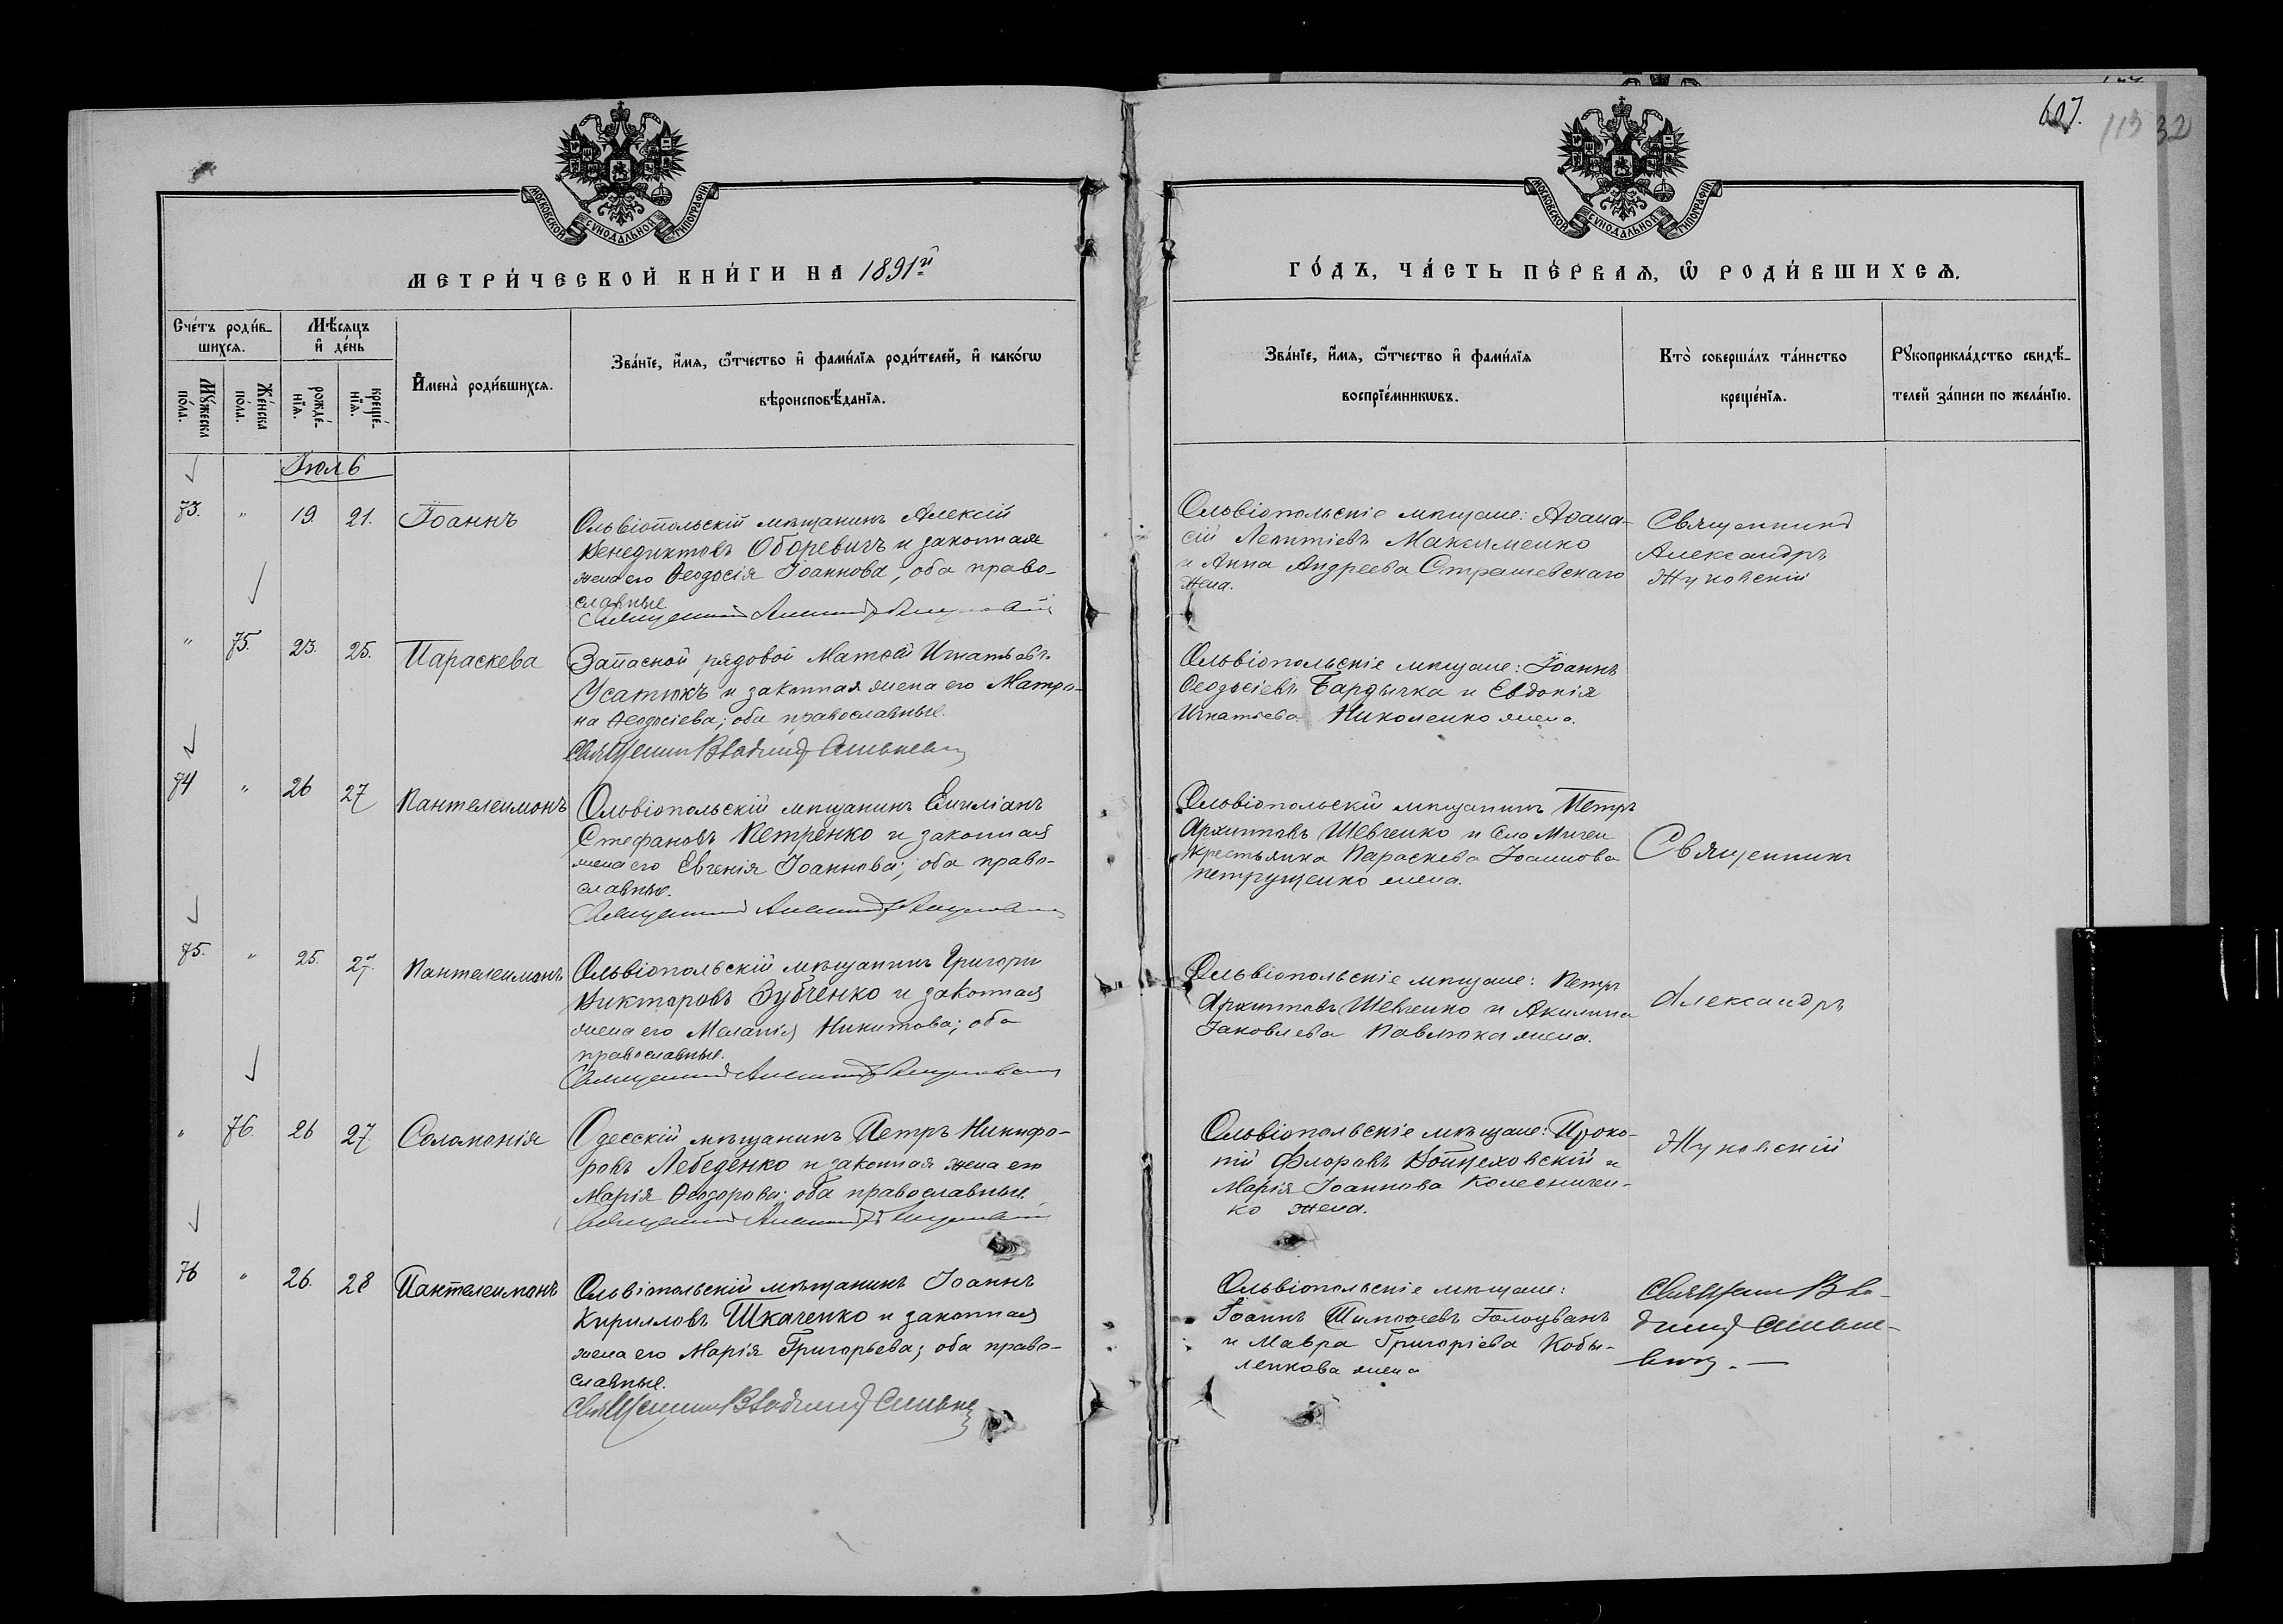 607.
113 32
МОСКОВСКОЙ СѴНОДАЛЬНОЙ ТИПОГРАФІИ
МОСКОВСКОЙ СѴНОДАЛЬНОЙ ТИПОГРАФІИ
МЕТРИ́ЧЕСКОЙ КНИ́ГИ НА 1891й
ГО́ДЪ, ЧА́СТЬ ПЕ́РВАѦ, Ѡ РОДИ́ВШИХСѦ.
Сче́тъ роди́в-
шихсѧ.
Мꙋ́жеска
по́ла.
Же́нска
по́ла.
Мѣ́сѧцъ
и҆ де́нь
рожде́-
нїѧ.
креще́-
нїѧ.
И҆мена̀ роди́вшихсѧ.
Зва́нїе, и҆́мѧ, ѻ҆́тчество и҆ фами́лїѧ роди́телей, и҆ како́гѡ
вѣроисповѣ́данїѧ.
Зва́нїе, и҆́мѧ, ѻ҆́тчество и҆ фами́лїѧ
воспрїе́мникѡвъ.
Кто̀ соверша́лъ та́инство
креще́нїѧ.
Рꙋкоприкла́дство свидѣ́-
телей за́писи по жела́нїю.
Іюль
73. " 19. 21. Іоаннъ
Ольвіопольскій мѣщанинъ Алексій
Венедиктовъ Оборевичъ и законная
жена его Ѳеодосія Іоаннова, оба право-
славные
Ольвіопольскіе мѣщане: Аѳана-
сій Леонтіевъ Максименко
и Анна Андреева Страшевскаго
жена.
Священникъ
Александръ
Жуковскій
" 75. 23. 25. Параскева
Запасной рядовой Матѳей Игнатьевъ
Усатюкъ и законная жена его Матро-
на Ѳеодосіева; оба православные.
Ольвіопольскіе мѣщане: Іоаннъ
Ѳеодосіевъ Бардычка и Евдокія
Игнатьева Николенко жена.
74 " 26 27 Пантелеимонъ
Ольвіопольскій мѣщанинъ Емиліанъ
Стефановъ Петренко и законная
жена его Евгенія Іоаннова; оба право-
славные.
Ольвіопольскій мѣщанинъ Петръ
Архиповъ Шевченко и села Мигеи
крестьянка Параскева Іоаннова
Петрущенко жена.
Священникъ
75. " 25. 27. Пантелеимонъ
Ольвіопольскій мѣщанинъ Григорій
Викторовъ Зубченко и законная
жена его Меланія Никитова; оба
православные.
Ольвіопольскіе мѣщане: Петръ
Архиповъ Шевченко и Акилина
Іаковлева Павлюка жена.
Александръ
" 76. 26 27. Соломонія
Одесскій мѣщанинъ Петръ Никифо-
ровъ Лебеденко и законная жена его
Марія Ѳеодорова; оба православные.
Ольвіопольскіе мѣщане: Проко-
пій Флоровъ Войцеховскій и
Марія Іоаннова Колесничен-
ко жена.
Жуковскій
76 " 26. 28 Пантелеимонъ
Ольвіопольскій мѣщанинъ Іоаннъ
Кирилловъ Шкаченко и законная
жена его Марія Григорьева; оба право-
славные.
Ольвіопольскіе мѣщане:
Іоаннъ Тимоѳеевъ Голоцванъ
и Мавра Григоріева Кобы-
ленкова жена